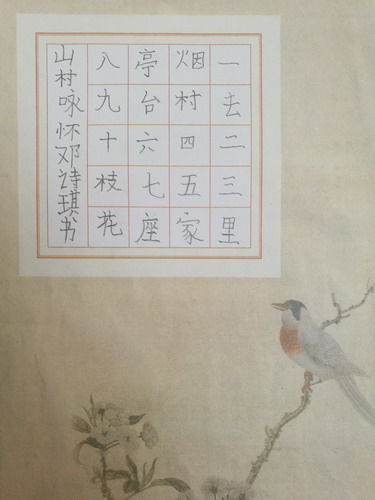 一去二三里
烟村四五家
亭台六七座
八九十枝花
山村咏怀邓诗琪书